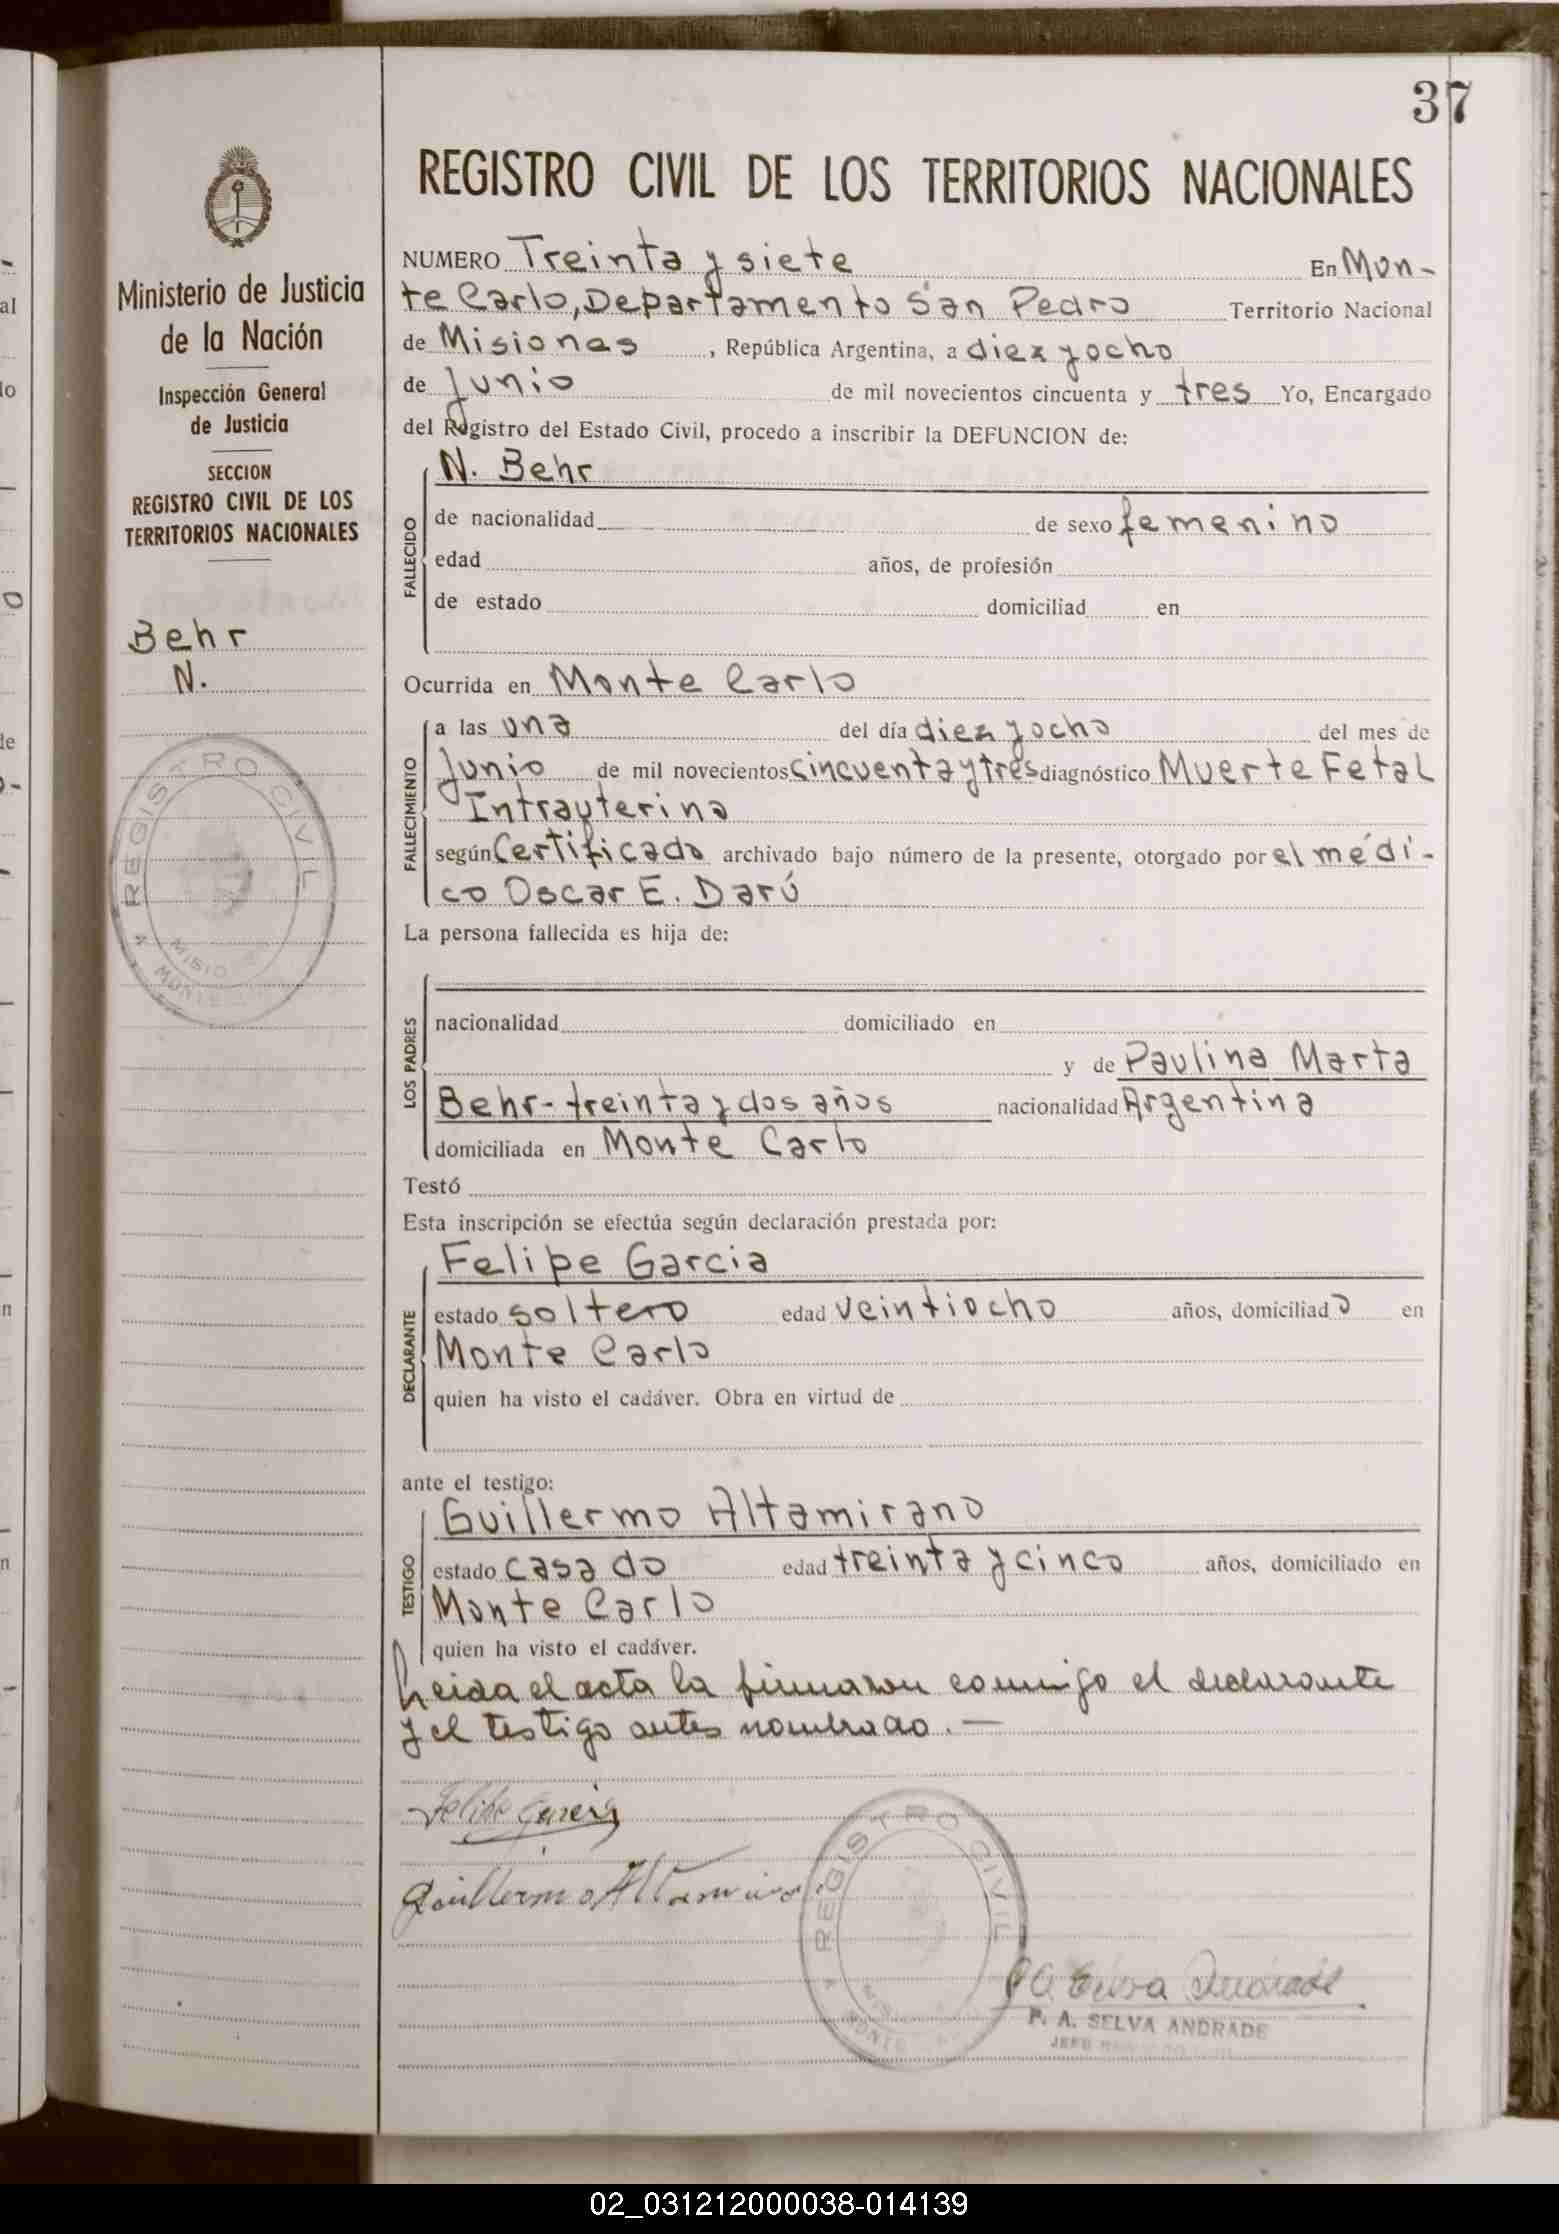 37
REGISTRO CIVIL DE LOS TERRITORIOS NACIONALES
Ministerio de Justicia
de la Nación
Inspección General
de Justicia
SECCION
REGISTRO CIVIL DE LOS
TERRITORIOS NACIONALES
Behr
N.
REGISTRO CIVIL
MISIO
MONTE
NUMERO Treinta y siete En Mon-
te Carlo, Departamento San Pedro Territorio Nacional
de Misiones, República Argentina, a diez y ocho
de Junio de mil novecientos cincuenta y tres Yo, Encargado
del Registro del Estado Civil, procedo a inscribir la DEFUNCION de:
FALLECIDO
N. Behr
de nacionalidad de sexo femenino
edad años, de profesión
de estado domiciliad en
Ocurrida en Monte Carlo
FALLECIMIENTO
a las una del día diez y ocho del mes de
Junio de mil novecientos cincuenta y tres diagnóstico Muerte Fetal
Intrauterina
según Certificado archivado bajo número de la presente, otorgado por el médi-
co Oscar E. Darú
La persona fallecida es hija de:
LOS PADRES
nacionalidad domiciliado en
y de Paulina Marta
Behr - treinta y dos años nacionalidad Argentina
domiciliada en Monte Carlo
Testó
Esta inscripción se efectúa según declaración prestada por:
DECLARANTE
Felipe Garcia
estado soltero edad veintiocho años, domiciliado en
Monte Carlo
quien ha visto el cadáver. Obra en virtud de
ante el testigo:
TESTIGO
Guillermo Altamirano
estado casado edad treinta y cinco años, domiciliado en
Monte Carlo
quien ha visto el cadáver.
Leida el acta la firmaron conmigo el declarante
y el testigo antes nombrado. —
Felipe Garcia
Guillermo Altamirano
REGISTRO CIVIL
MONTE
P. A. Selva Andrade
P. A. SELVA ANDRADE
JEFE
02_031212000038-014139